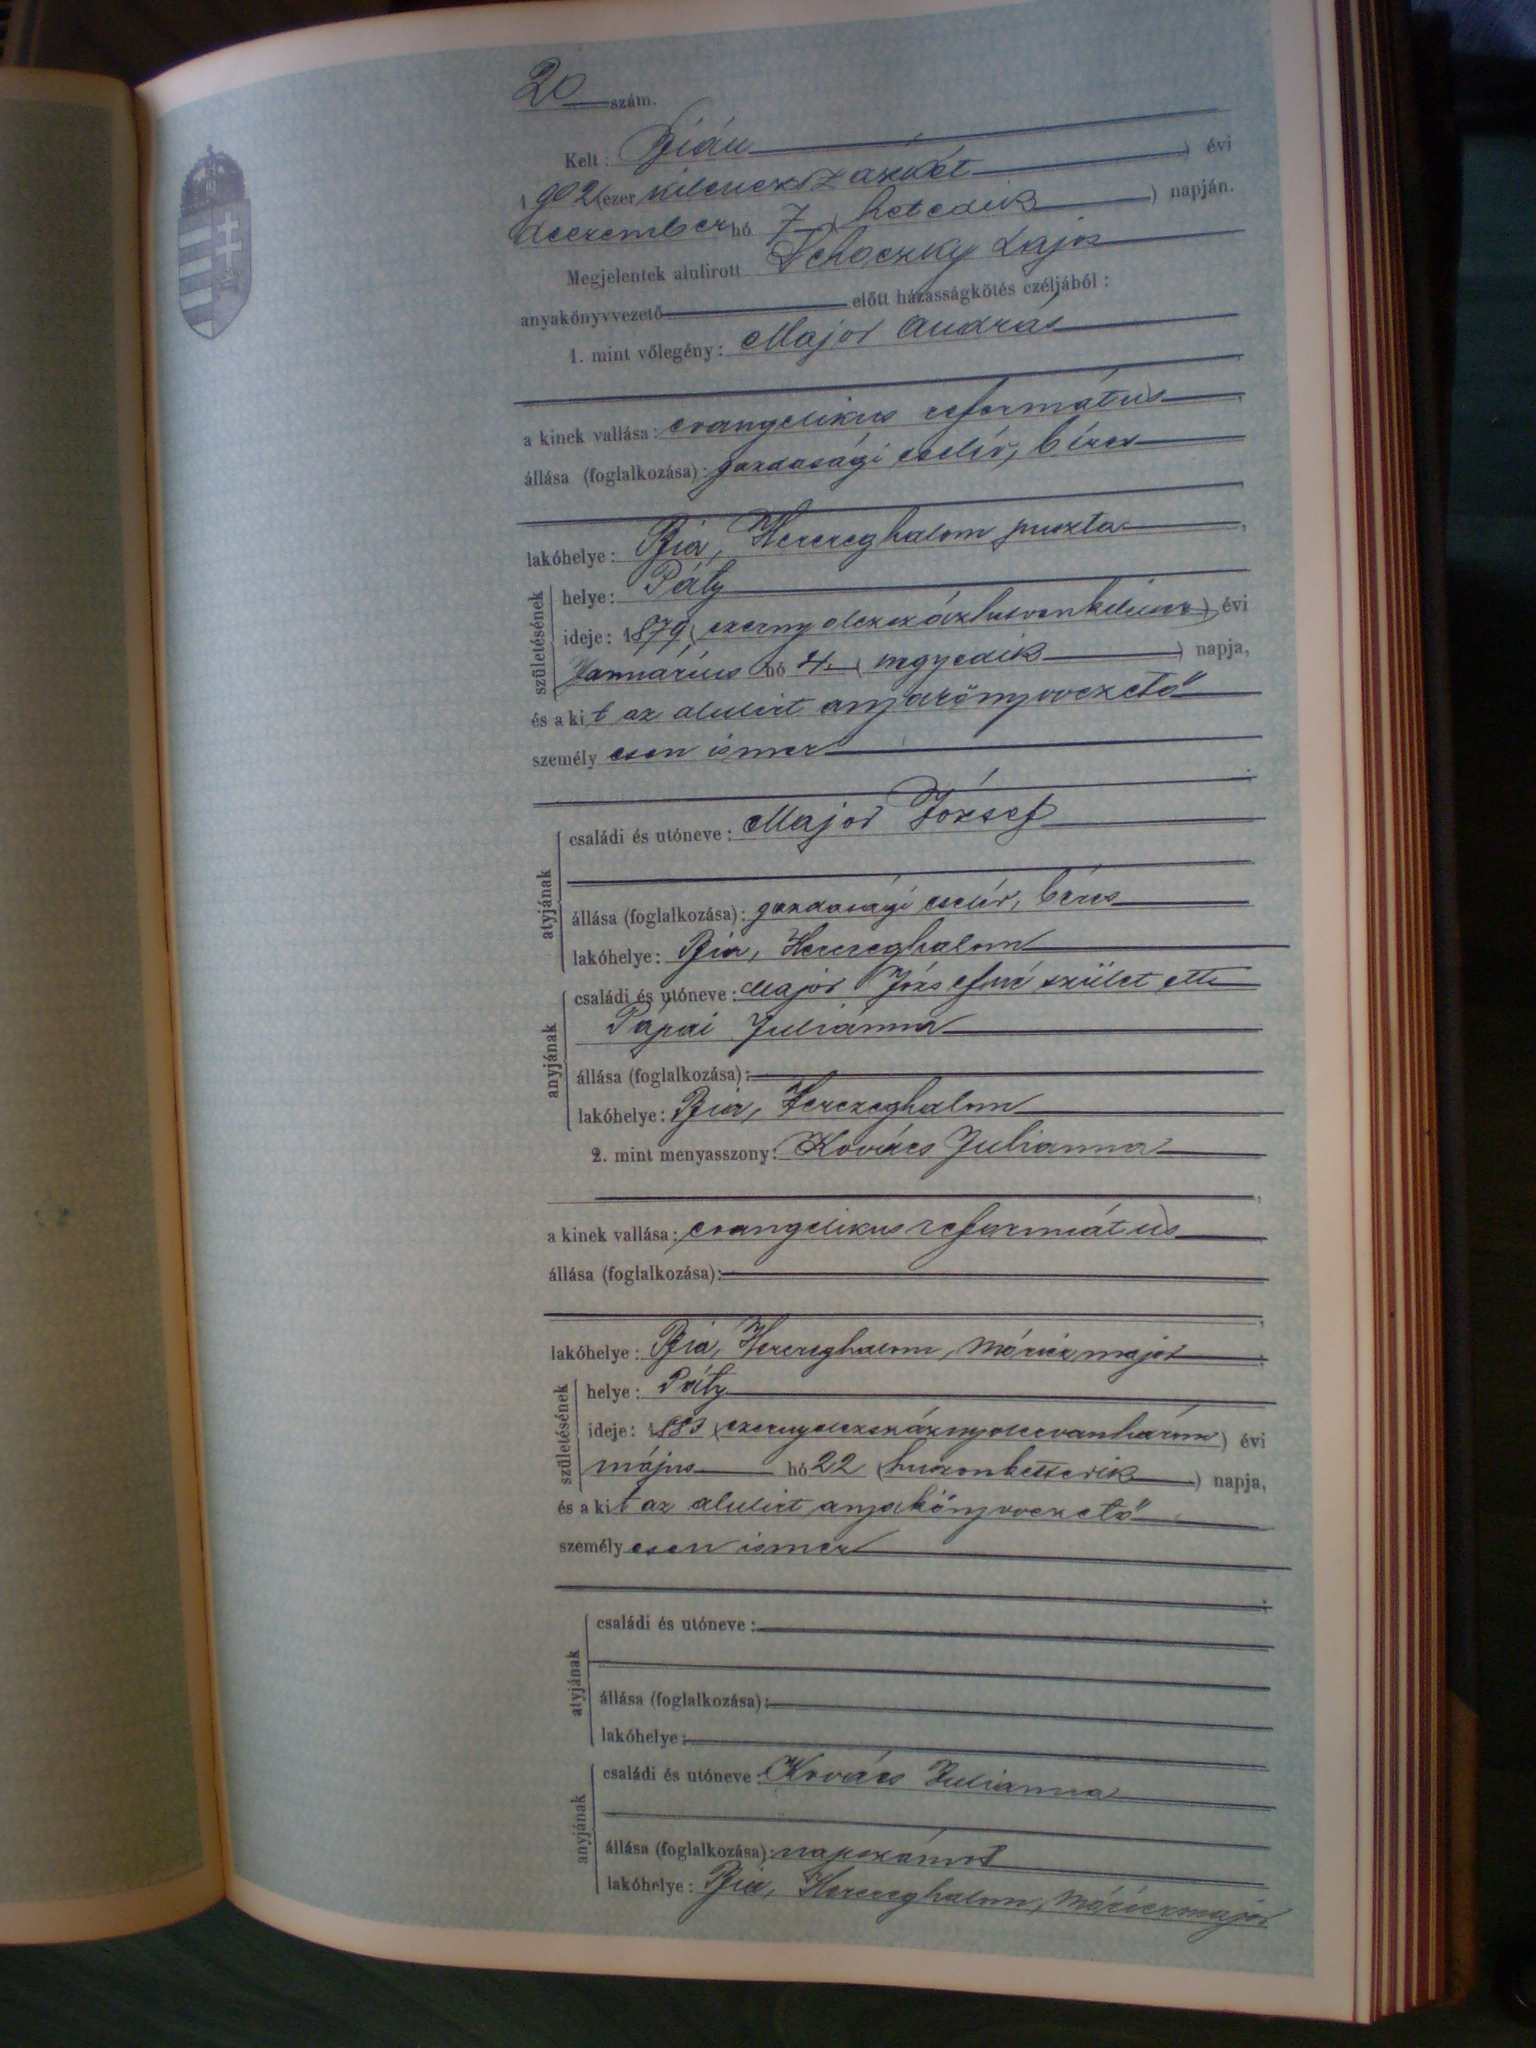 20 szám.
Kelt: Bián
1902 (ezer kilenczszázkét ) évi
deczember hó 7 ( hetedik ) napján.
Megjelentek alulirott Lajos
anyakönyvvezető előtt házasságkötés czéljából:
1. mint vőlegény: Major András
a kinek vallása: evangelikus református ,
állása (foglalkozása): gazdasági cseléd, béres
,
lakóhelye: Bia, Herczeghalom puszta ,
születésének
helye: Páty
ideje: 1879 (ezernyolczszázhetvenkilencz) évi
Januárius hó 4. ( negyedik ) napja,
és a kit az alulirt anyakönyvvezető
személyesen ismer
.
atyjának
családi és utóneve: Major József
állása (foglalkozása): gazdasági cseléd, béres
lakóhelye: Bia, Herczeghalom
anyjának
családi és utóneve: Major Józsefné született
Pápai Juliánna
állása (foglalkozása):
lakóhelye: Bia, Herczeghalom
2. mint menyasszony: Kovács Julianna
,
a kinek vallása: evangelikus református ,
állása (foglalkozása):
,
lakóhelye: Bia, Herczeghalom, Móricz major ,
születésének
helye: Páty
ideje: 1883 (ezernyolczszáznyolczvanhárom) évi
május hó 22 (huszonkettedik ) napja,
és a kit az alulirt anyakönyvvezető
személyesen ismer
;
atyjának
családi és utóneve:
állása (foglalkozása):
lakóhelye:
anyjának
családi és utóneve: Kovács Julianna
állása (foglalkozása): napszámos
lakóhelye: Bia, Herczeghalom, Móriczmajor